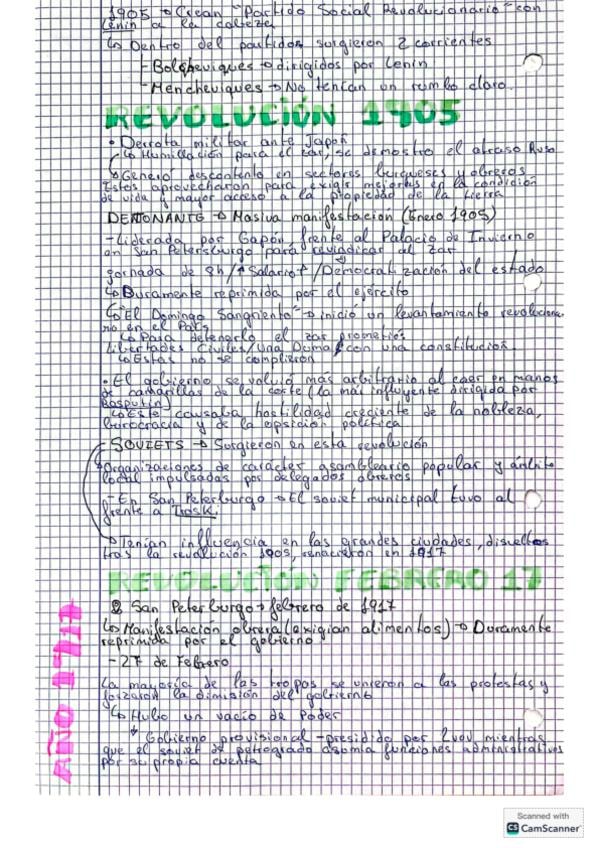 1905 → Crean "Partido Social Revolucionario" con
Lenin a la cabeza
↳ Dentro del partidos surgieron 2 corrientes
- Bolcheviques → dirigidos por Lenin
- Mencheviques → No tenían un rumbo claro.
REVOLUCIÓN 1905
• Derrota militar ante Japón
↳ Humillación para el zar, se demostro el atraso Ruso
↳ Generó descontento en sectores burgueses y obreros
Estos aprovecharon para exigir mejoras en la condición
de vida y mayor acceso a la propiedad de la tierra
DETONANTE → Masiva manifestación (Enero 1905)
- Liderada por Gapón, frente al Palacio de Invierno
en San Petersburgo para reivindicar al zar
jornada de 8h/↑ Salario+/Democratización del estado
↳ Duramente reprimida por el ejercito
↳ "El Domingo Sangriento" → inició un levantamiento revoluciona
rio en el País
↳ Para detenerlo el zar prometió:
Libertades Civiles/una Duma/con una constitución
↳ Estas no se complieron
• El gobierno se volvió más arbitrario al caer en manos
de camarillas de la corte (la más influyente dirigida por
Rasputin)
↳ Esto causaba hostilidad creciente de la nobleza,
burocracia y de la oposición política
SOVIETS → Surgieron en esta revolución
Organizaciones de carácter asambleario popular y ámbito
local impulsadas por delegados obreros
- En San Peterburgo → El soviet municipal tuvo al
frente a Troski
→ Tenían influencia en las grandes ciudades, disueltos
tras la revolución 1905, renacieron en 1917
REVOLUCIÓN FEBRERO 17
AÑO 1917
San Peterburgo → febrero de 1917
↳ Manifestación obrera (exigian alimentos) → Duramente
reprimida por el gobierno
- 27 de Febrero
La mayoría de las tropas se unieron a las protestas y
forzaron la dimisión del gobierno
↳ Hubo un vacío de Poder
Gobierno provisional - presidido por Lvov mientras
que el soviet de petrogrado asomía funciones administrativas
por su propia cuenta
Scanned with
CS CamScanner